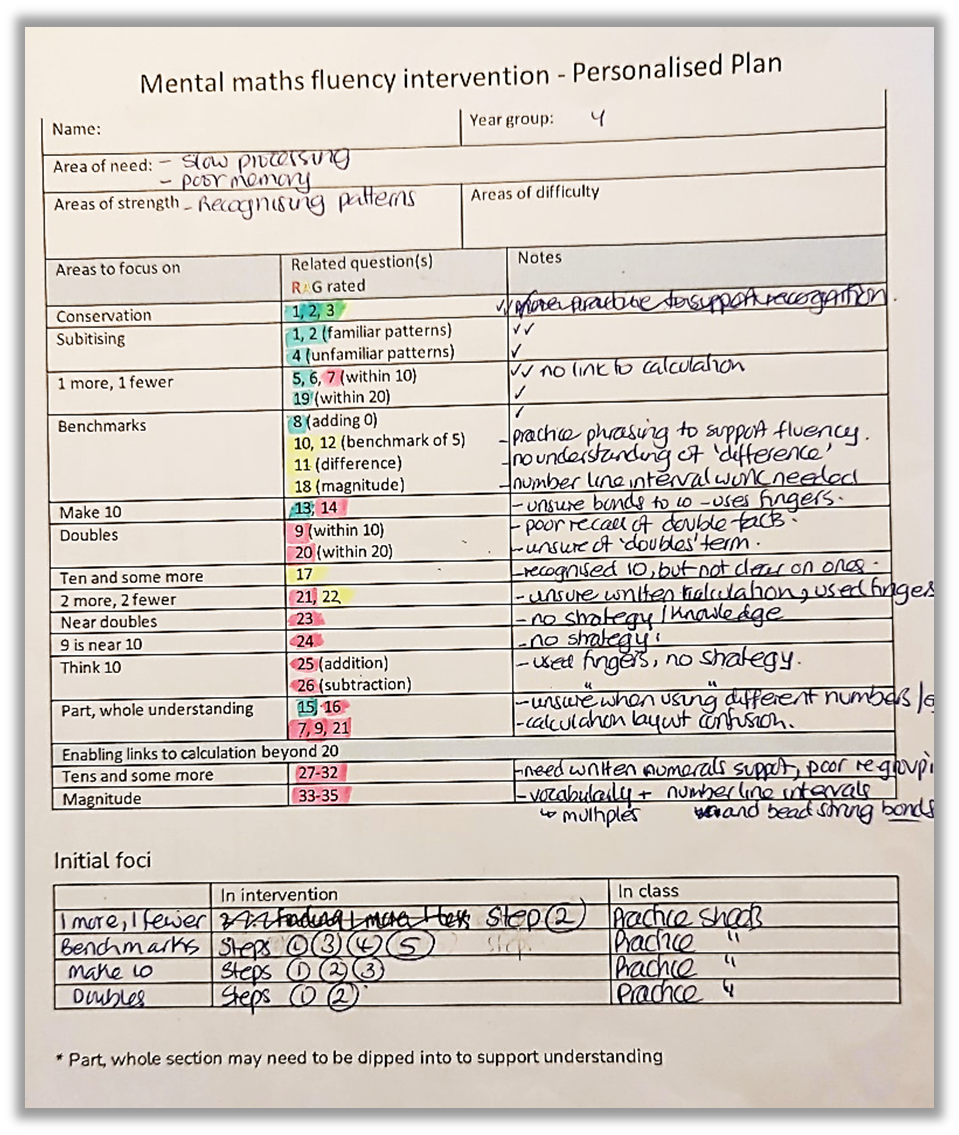 Mental maths fluency intervention - Personalised Plan
Name: Year group: 4
Area of need: - slow processing
- poor memory
Areas of strength - Recognising patterns Areas of difficulty
Areas to focus on Related question(s) Notes
RAG rated
Conservation 1, 2, 3 ✓✓ more practice to support recognition.
Subitising 1, 2 (familiar patterns) ✓✓
4 (unfamiliar patterns) ✓
1 more, 1 fewer 5, 6, 7 (within 10) ✓✓ no link to calculation
19 (within 20) ✓
Benchmarks 8 (adding 0) ✓
10, 12 (benchmark of 5) - practice phrasing to support fluency.
11 (difference) - no understanding of 'difference'
18 (magnitude) - number line interval work needed
Make 10 13, 14 - unsure bonds to 10 - uses fingers.
Doubles 9 (within 10) - poor recall of double facts.
20 (within 20) - unsure of 'doubles' term.
Ten and some more 17 - recognised 10, but not clear on ones.
2 more, 2 fewer 21, 22 - unsure written calculation, used fingers
Near doubles 23 - no strategy/knowledge
9 is near 10 24 - no strategy.
Think 10 25 (addition) - used fingers, no strategy.
26 (subtraction) " "
Part, whole understanding 15, 16 - unsure when using different numbers /
7, 9, 21 - calculation layout confusion.
Enabling links to calculation beyond 20
Tens and some more 27-32 - need written numerals support, poor regroupi
Magnitude 33-35 - vocabulaily + number line intervals
↳ multiples and bead string bonds
Initial foci
In intervention In class
1 more, 1 fewer finding 1 more 1 less Step ② Practice sheets
Benchmarks Steps ① ③ ④ ⑤ Step. Practice "
make 10 Steps ① ② ③ Practice "
Doubles Steps ① ② Practice "
* Part, whole section may need to be dipped into to support understanding